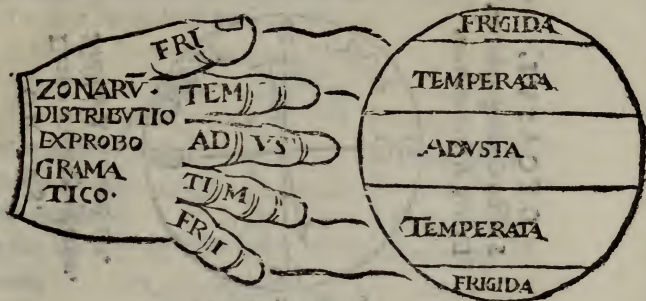 FRI
ZONARV̄·
DISTRIBVTIO
EXPROBO
GRAMA
TICO·
TEM
ADVS
TIM
FRI
FRIGIDA
TEMPERATA
ADVSTA
TEMPERATA
FRIGIDA